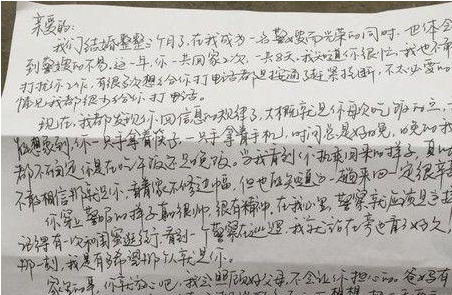 亲爱的:
我们结婚整整三个月了,在我成为一名警嫂而光荣的同时,也体会
到警嫂的不易,这一年,你一共回家三次,一共8天,我知道你很忙,我也不常
打扰你工作,有很多次想给你打电话都是接通了赶紧挂断,不太必要的
情况我都很少给你打电话。
现在,我都发现你回信息的规律了,大概就是你每次吃饭的点,
能想象到,你一只手拿着筷子,一只手拿着手机,时间总是好晚,晚的我
都不知道你是在吃午饭还是晚饭。当我看到你执勤回来的样子,真
不敢相信那就是你,看着你不修边幅,但也知道这一趟来回一定很辛
你穿上警服的样子真的很帅,很有精神,在我心里,警察就应该是这
记得有一次和闺蜜逛街,看到一个警察在巡逻,我就站在旁边看了好久,
那一刻,我是多希望那个人就是你。
家里的事,你就放心吧,我会照顾好父母,不会让你担心的。爸妈有